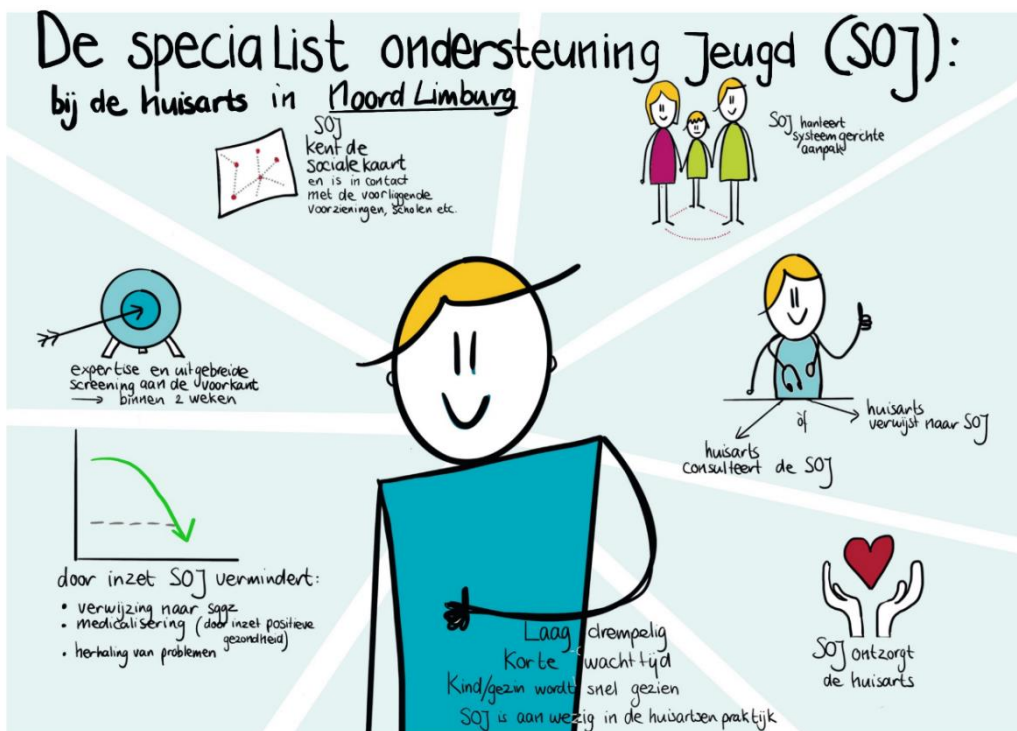 De specialist ondersteuning Jeugd (SOJ):
bij de huisarts in Noord Limburg
SOJ
kent de
sociale kaart
en is in contact
met de voorliggende
voorzieningen, scholen etc.
SOJ hanteert
systeem gerichte
aanpak
expertise en uitgebreide
screening aan de voorkant
→ binnen 2 weken
of
huisarts
verwijst naar SOJ
huisarts
consulteert de SOJ
door inzet SOJ vermindert:
• verwijzing naar sggz
• medicalisering (door inzet positieve
gezondheid)
• herhaling van problemen
Laag drempelig
Korte wachttijd
Kind/gezin wordt snel gezien
SOJ is aanwezig in de huisartsen praktijk
SOJ ontzorgt
de huisarts